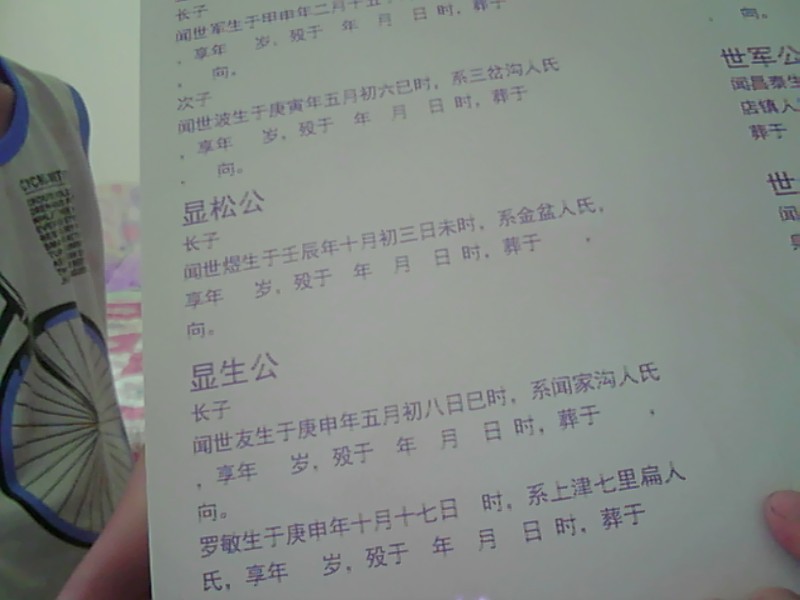 长子
闻世军生于甲申年二月十五
，享年 岁，殁于 年 月 日 时，葬于
， 向。
次子
闻世波生于庚寅年五月初六巳时，系三岔沟人氏
，享年 岁，殁于 年 月 日 时，葬于
， 向。
显松公
长子
闻世煜生于壬辰年十月初三日未时，系金盆人氏，
享年 岁，殁于 年 月 日 时，葬于 ，
向。
显生公
长子
闻世友生于庚申年五月初八日巳时，系闻家沟人氏
，享年 岁，殁于 年 月 日 时，葬于 ，
向。
罗敏生于庚申年十月十七日 时，系上津七里扁人
氏，享年 岁，殁于 年 月 日 时，葬于
， 向。
世军公
闻昌泰生
店镇人
葬于
世
闻